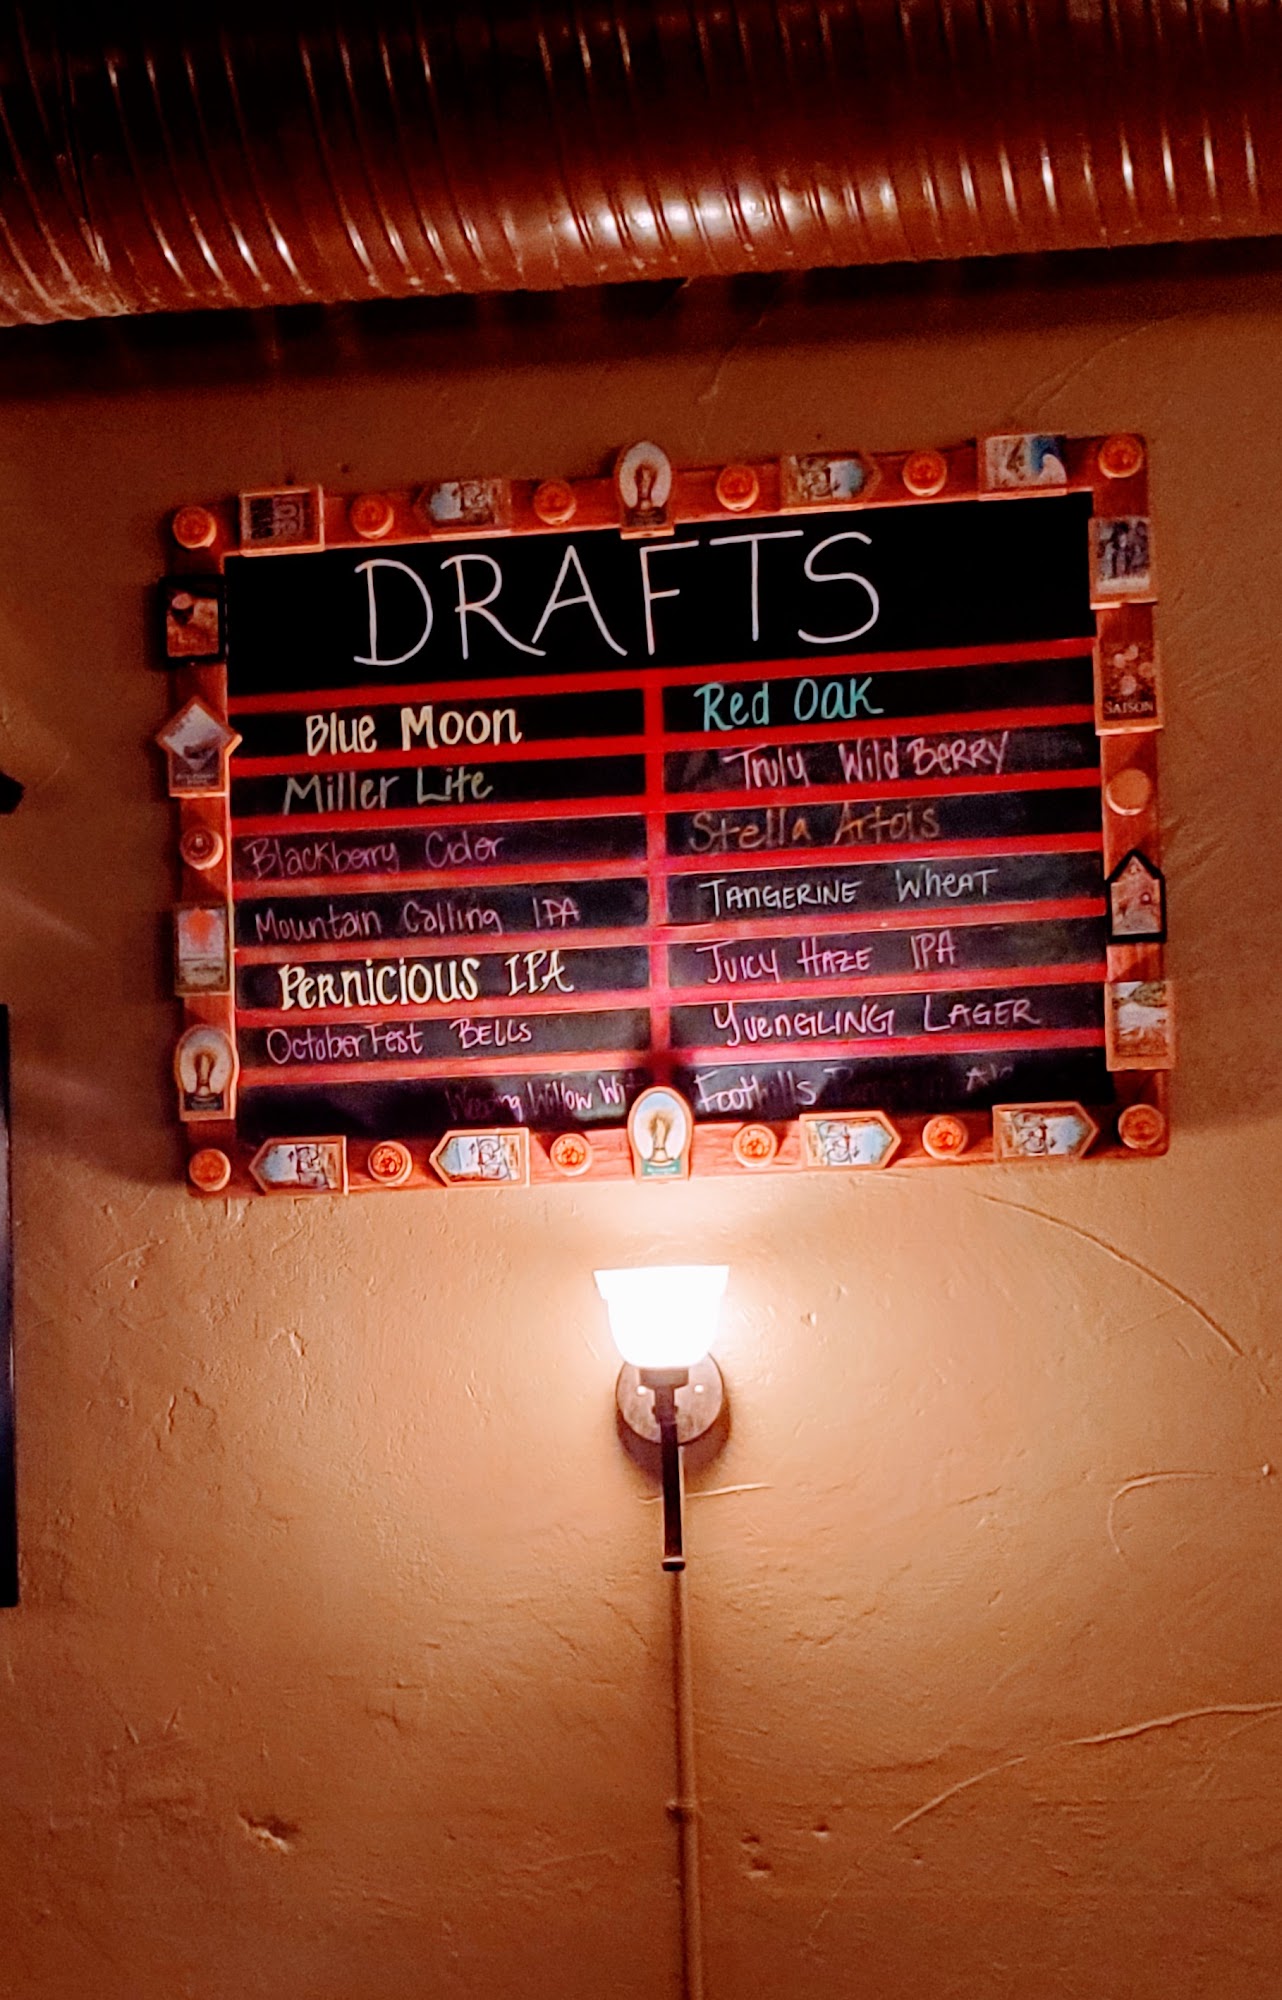 DRAFTS
Blue Moon
Miller Lite
Blackberry Cider
Mountain Calling IPA
Pernicious IPA
OctoberFest Bells
Willow
Red Oak
Truly Wild Berry
Stella Artois
Tangerine Wheat
Juicy Haze IPA
Yuengling Lager
Foothills
SAISON